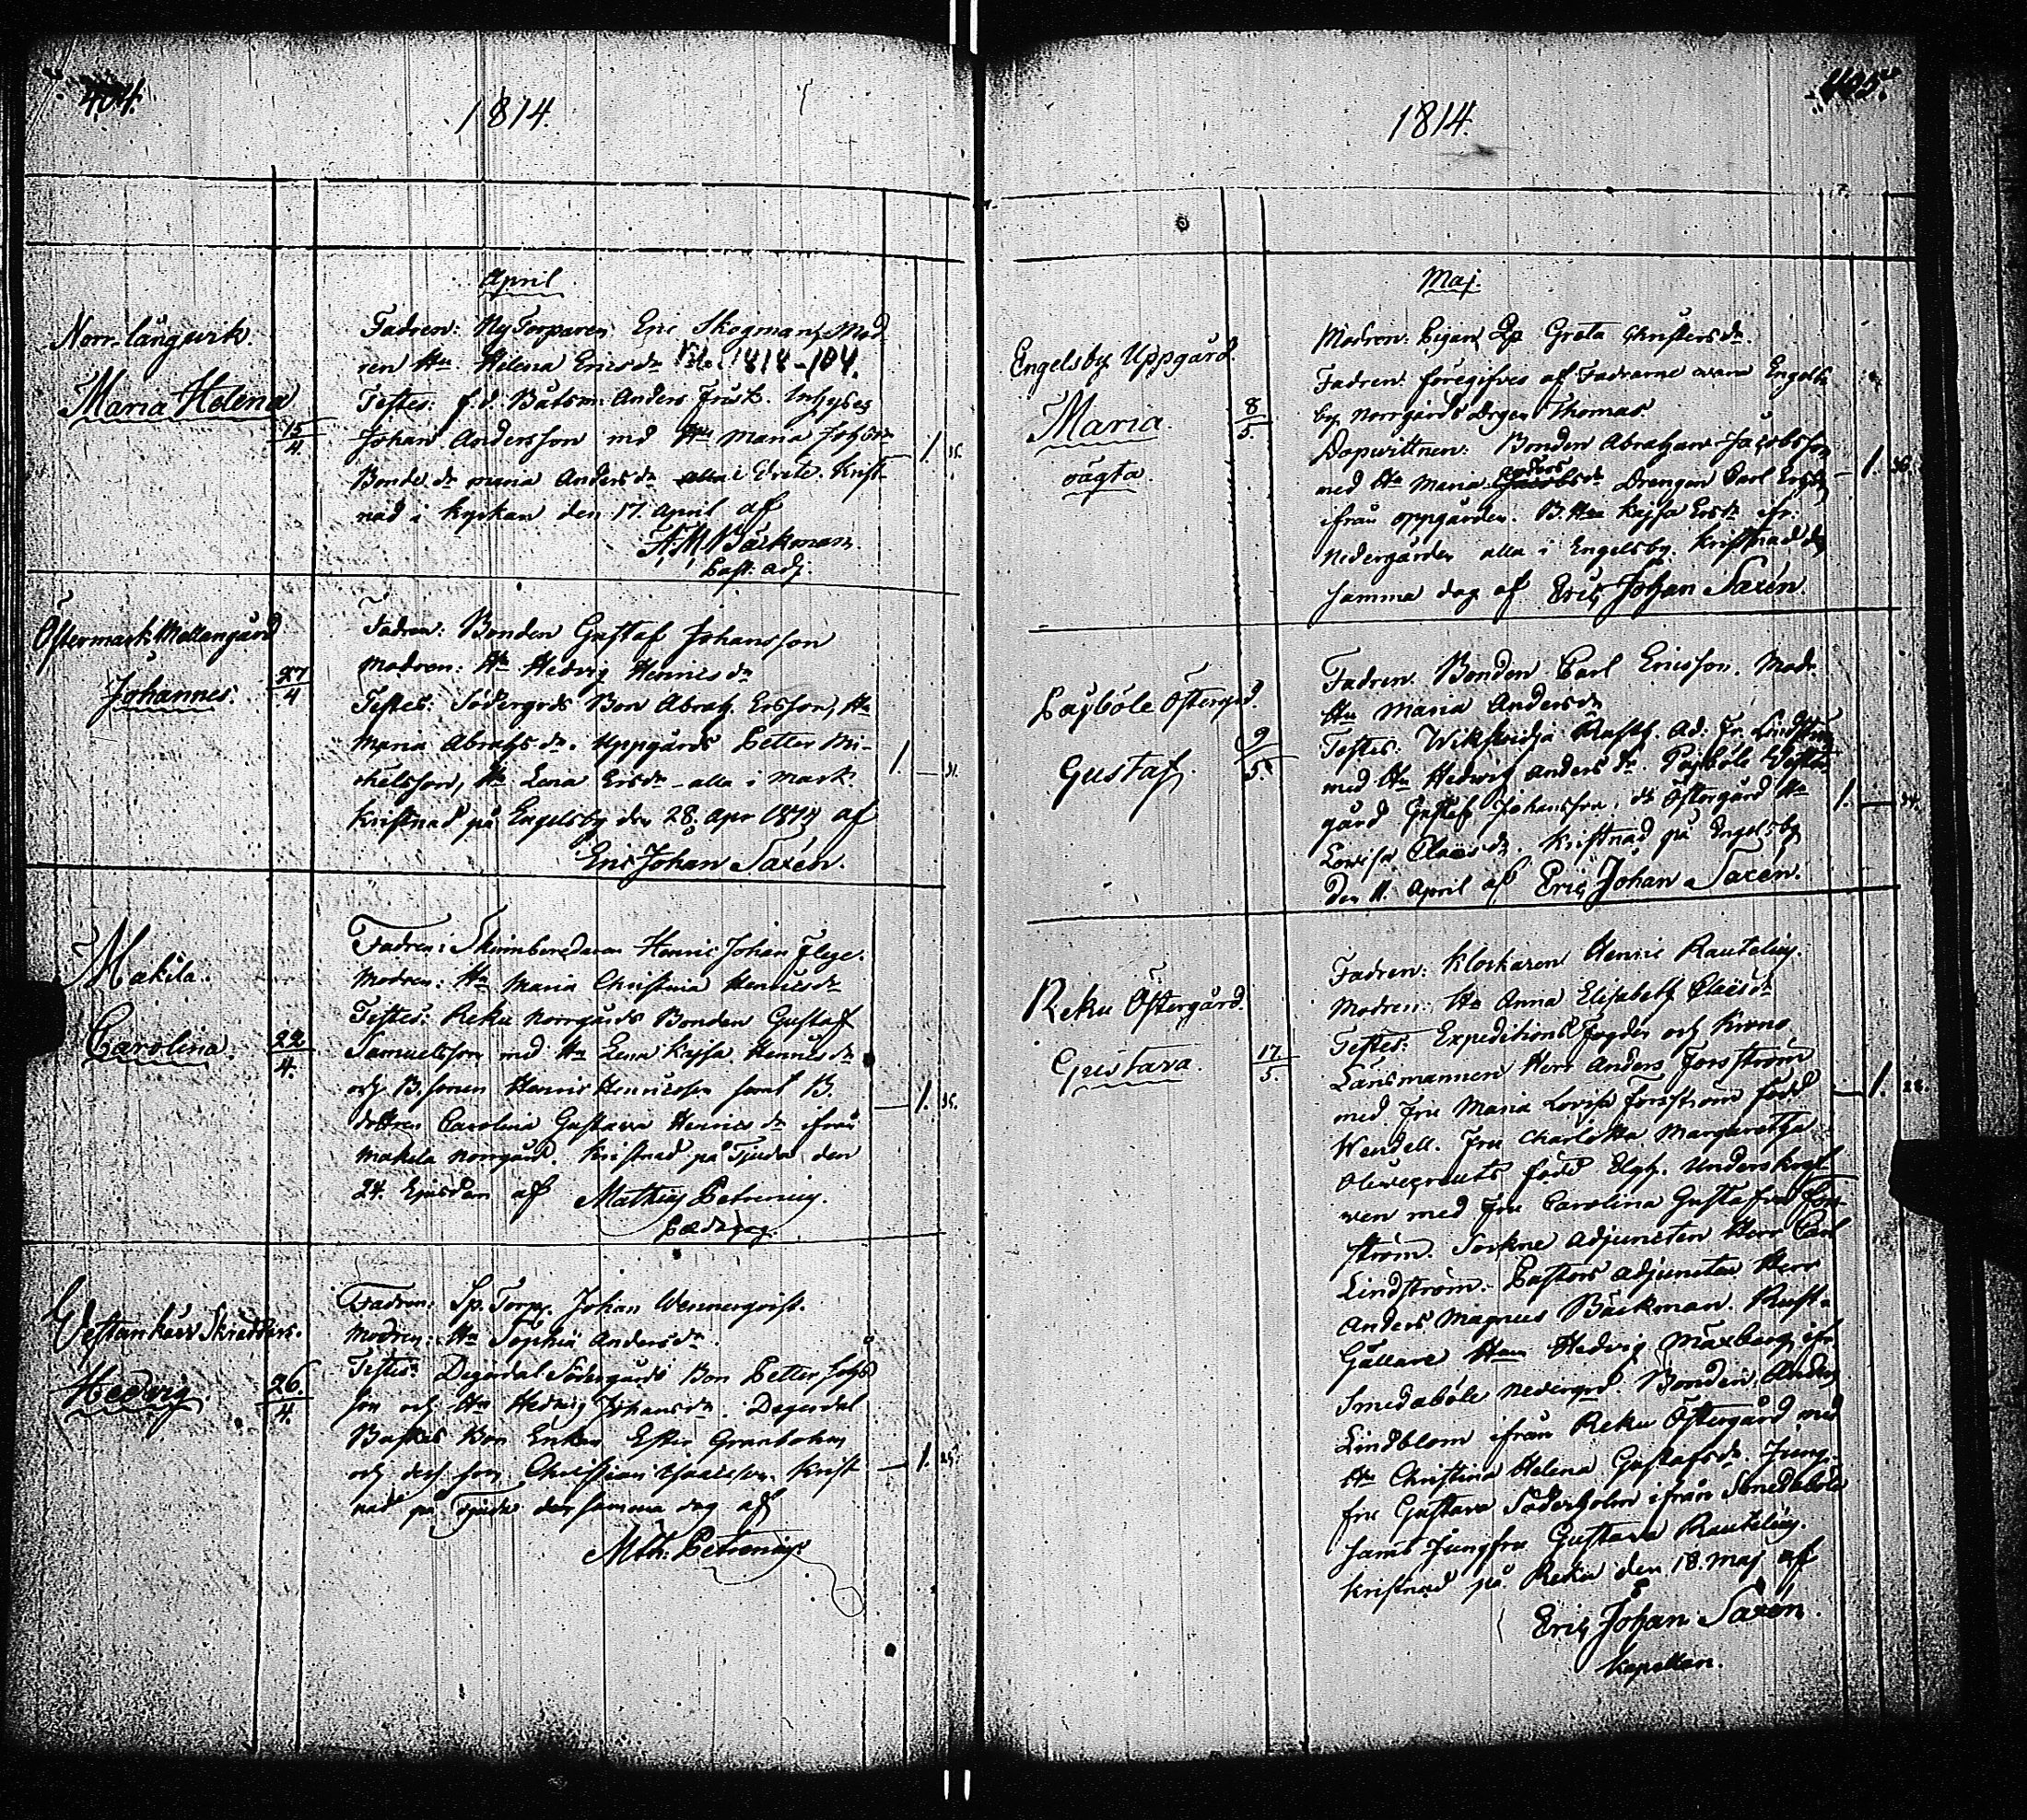 404.
1814.
April
Norrlångvik.
Maria Helena
15/4
Fadren: Ny Torparen Eric Skogman, Mod-
ren Hu. Helena Ericsdr 1818-104.
Testes: f.d. Båtsm: Anders Frisk. Inhyses
Johan Andersson med Hu Maria Johsdr
Bonde dr Maria Andersdr alla i Krist-
nad i kyrkan den 17. April af
A.M. Bäckman,
Past: adj.
1. 35.
Östermark Mellangård
Johannes.
27/4
Fadren: Bonden Gustaf Johansson
Modren: Hu Hedvig Henricsdr
Testes: Södergrds Bon Abrah. Ersson, Hu
Maria Abrahsdr. Uppgårds Petter Mi-
chelsson, Hu Lena Ersdr - alla i Mark.
Kristnad på Engelsby den 28. Apr 1814 af
Eric Johan Saxén.
1. 31.
Makila.
Carolina.
22/4.
Fadren: Skinnberedaren Henric Johan Flege.
Modren: Hu Maria Christina Henricsdr
Testes: Reku Norrgårds Bonden Gustaf
Samuelsson med Hu Lena Kajsa Henricsdr
och B. sonen Henric Henricsson samt B.
dottren Carolina Gustava Henricsdr ifrån
Makila Norrgård. Kristnad på Tjuda den
24. Ejusdem af Mathias Petrenius.
Pædagog.
1. 35.
Vestankärr Skrädders.
Hedvig.
26./4.
Fadren: Sp. Torp. Johan Wennerqvist.
Modren: Hu Sophia Andersdr.
Testes: Degerdal Södergårds Bon Petter Johs-
son och Hu Hedvig Johansdr. Degerdal
Bon Enkan Granholm
och dess son Christian Isaacsson. Krist-
nad på Tjuda den samma dag af
Mth: Petrenius.
1. 25.
405.
1814.
Maj.
Engelsby Uppgård.
Maria.
oägta.
8/5.
Modren: Pigan Lp Greta Christersdr.
Fadren föregifves af Fadrarne vara Engels-
by Norrgårds Drgen Thomas
Dopwittnen: Bonden Abraham Jacobsson
med Hu Maria Anders dr Drengen Carl Ersson
ifrån oppgården. B. Kajsa Ersdr ifr:
Nedergården alla i Engelsby. Kristnad dn
samma dag af Eric Johan Saxén.
1. 36.
Pajböle Östergrd.
Gustaf.
9/5.
Fadren. Bonden Carl Ericsson. Modr.
Hu Maria Andersdr
Testes: Wiksvidja Rusth. Ad: Fr. Lindström
med Hu Hedwig Andersdr. Pajböle Wester-
gård Gustaf Johansson, dr Östergård Hu
Lovisa Claesdr. Kristnad på Engelsby
den 11. April af Eric Johan Saxén.
1. 34.
Reku Östergård.
Gustava.
17/5.
Fadren: Klockaren Henric Rautelius.
Modren: Hu Anna Elisabeth Claesdr
Testes: Expeditions Fogden och Krono
Länsmannen Herr Anders Forsström
med Fru Maria Lovisa Forsström född
Wendell. Fru Charlotta Margaretha
född Elgh. Underskrif-
ven med Fru Carolina Gustafva Fors-
ström. Sockne Adjuncten Herr Carl
Lindström. Pastors Adjuncten Herr
Anders Magnus Bäckman. Rust-
hållare Hedvig Maxberg ifr.
Smedaböle Nedergrd. Bonden Anders
Lindblom ifrån Reku Östergård med
Hu Christina Helena Gustafsdr. Jung-
fru Gustava Söderholm ifrån Smedaböle
samt Jungfru Gustava Rautelius.
Kristnad på Reku den 18. Maj af
Eric Johan Saxén.
Kapellan.
1. 28.